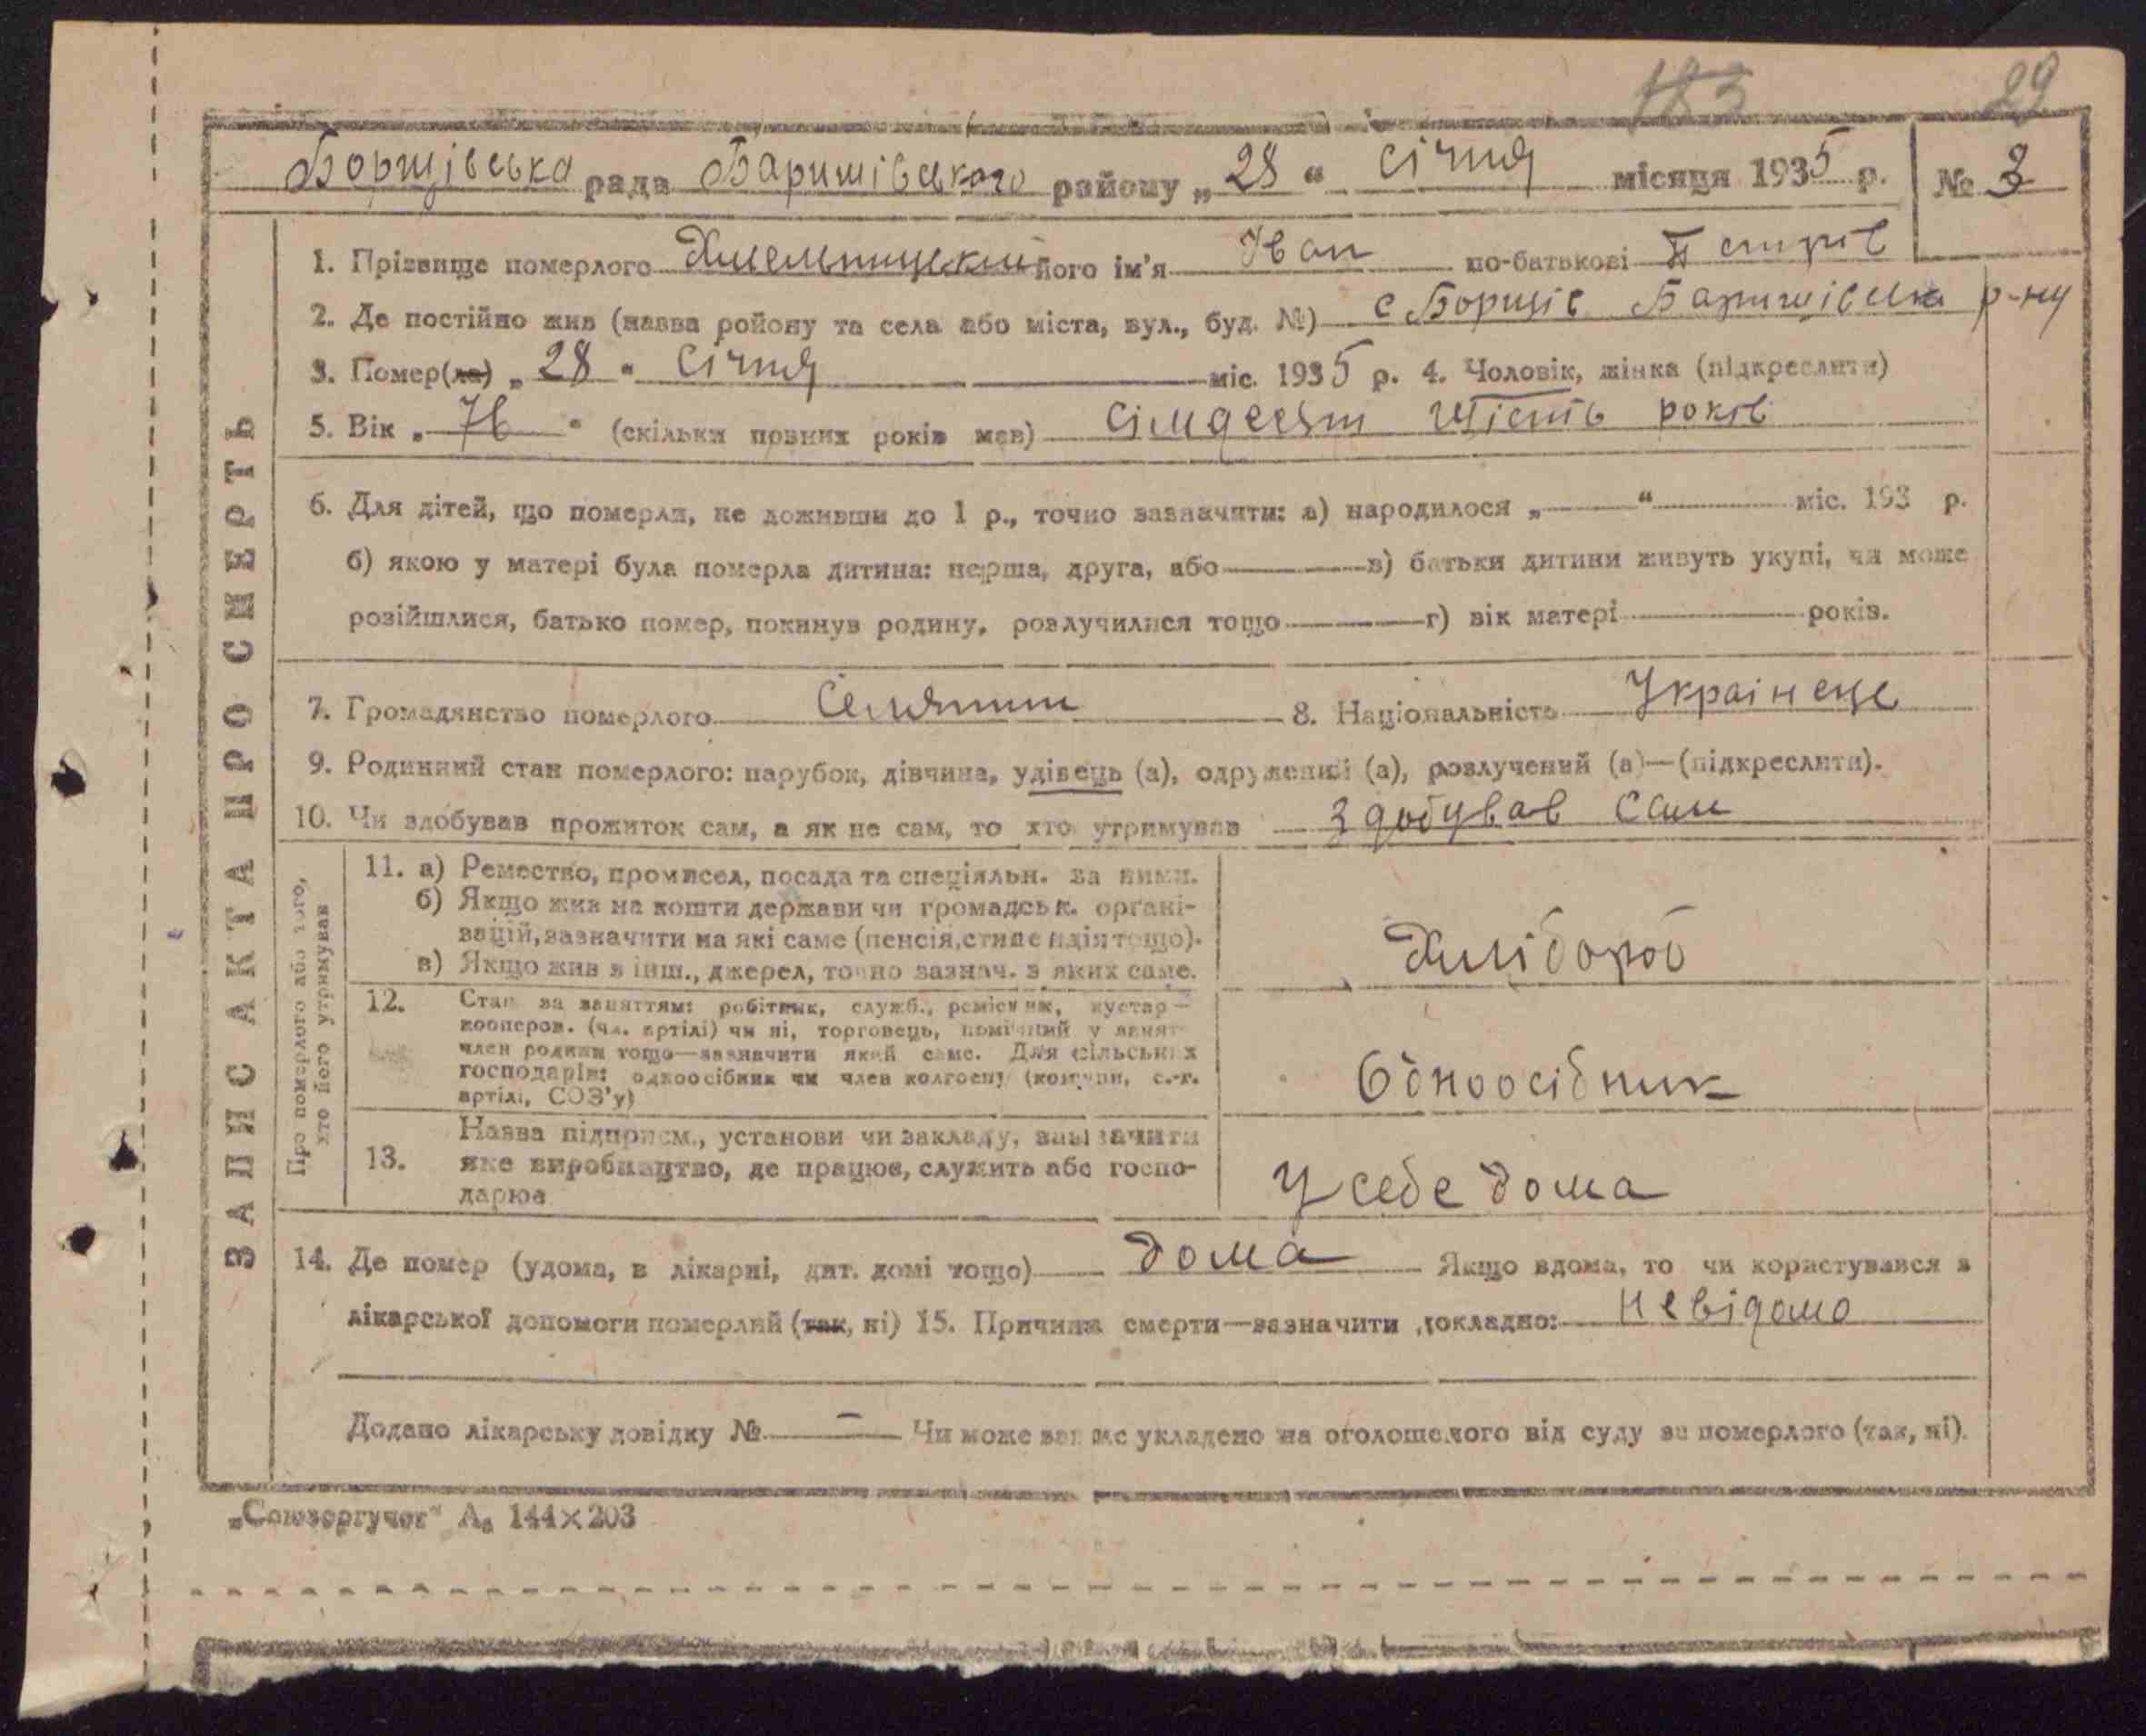 183 29
Борщівська рада Баришівського району „ 28 “ січня місяця 1935 р. № 3
1. Прізвище померлого Хмельницький його ім'я Іван по-батькові Петрів
2. Де постійно жив (назва ройону та села або міста, вул., буд. №) с Борщів Баришівська р-ну
3. Помер(ла) „ 28 “ січня міс. 1935 р. 4. Чоловік, жінка (підкреслити)
5. Вік „ 76 “ (скільки повних років мав) сімдесят шість років
6. Для дітей, що померли, не доживши до 1 р., точно зазначити: а) народилося „ “ міс. 193 р.
б) якою у матері була померла дитина: перша, друга, або в) батьки дитини живуть укупі, чи може
розійшлися, батько помер, покинув родину, розлучилися тощо г) вік матері років.
7. Громадянство померлого Селянин 8. Національність Українець
9. Родинний стан померлого: парубок, дівчина, удівець (а), одружений (а), розлучений (а)—(підкреслити).
10. Чи здобував прожиток сам, а як не сам, то хто утримував здобував сам
ЗАПИС АКТА ПРО СМЕРТЬ
Про померлого або того,
хто його утримував
11. а) Ремество, промисел, посада та спеціяльн. за ними.
б) Якщо жив на кошти держави чи громадськ. органі-
зацій, зазначити на які саме (пенсія, стипендія тощо).
в) Якщо жив з інш., джерел, точно зазнач. з яких саме.
Хлібороб
12. Стан за заняттям: робітник, служб., ремісник, кустар—
кооперов. (чл. артілі) чи ні, торговець, помічний у занят.
член родини тощо—зазначити який саме. Для сільських
господарів: одноосібник чи член колгоспу (комуни, с.-г.
артілі, СОЗ'у)
Одноосібник
13. Назва підприєм., установи чи закладу, визначити
яке виробництво, де працює, служить або госпо-
дарює
У себе дома
14. Де помер (удома, в лікарні, дит. домі тощо) дома Якщо вдома, то чи користувався з
лікарської допомоги померлий (так, ні) 15. Причина смерти—зазначити докладно: невідомо
Додано лікарську довідку № — Чи може запис укладено на оголошеного від суду за померлого (так, ні).
„Союзоргучет“ А₅ 144×203